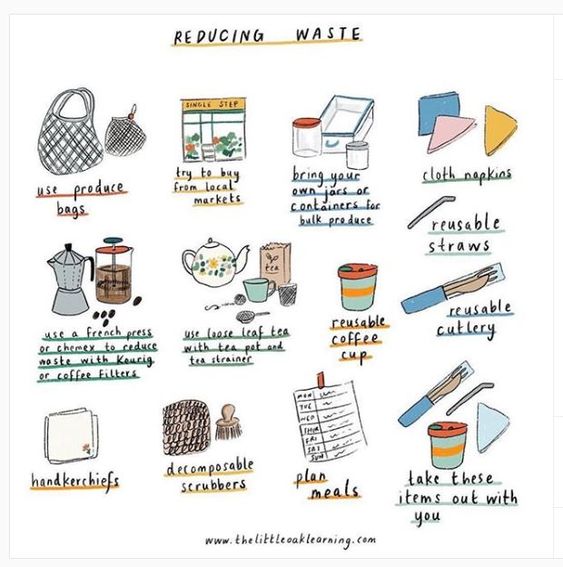 REDUCING WASTE
use produce
bags
SINGLE STEP
try to buy
from local
markets
bring your
own jars or
containers for
bulk produce
cloth napkins
reusable
straws
use a french press
or chemex to reduce
waste with Keurig
or coffee filters
tea
use loose leaf tea
with tea pot and
tea strainer
reusable
coffee
cup
reusable
cutlery
handkerchiefs
decomposable
scrubbers
MON
TUE
WED
THUR
FRI
SAT
SUN
plan
meals
take these
items out with
you
www.thelittleoaklearning.com